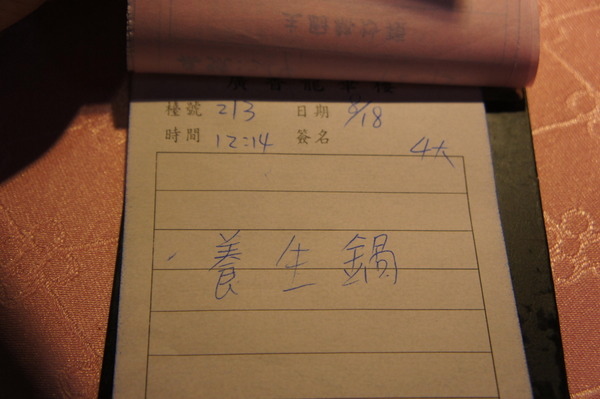 檯號 213 日期 8/18
時間 12:14 簽名
4大
養生鍋